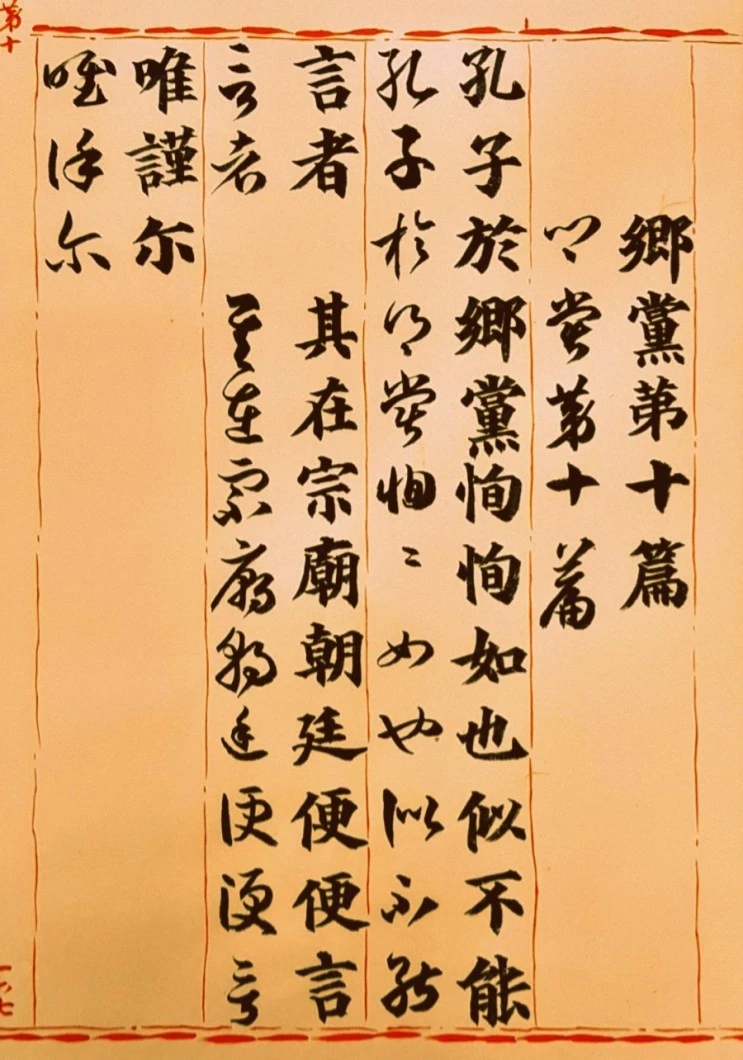 鄉黨第十篇
鄉黨第十篇
孔子於鄉黨恂恂如也似不能
孔子於鄉黨恂〻如也似不能
言者 其在宗廟朝廷便便言
言者 其在宗廟朝廷便便言
唯謹尓
唯謹尓
第十